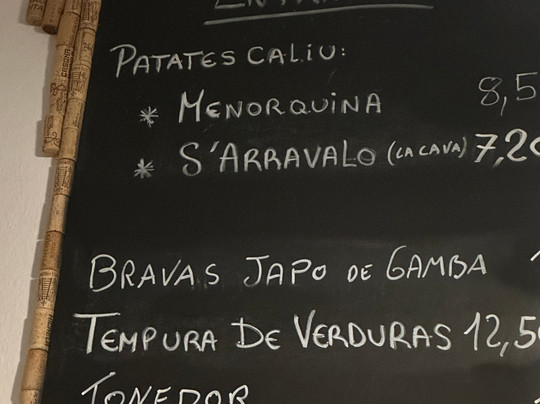 PATATES CALIU:
* MENORQUINA 8,5
* S'ARRAVALO (LA CAVA) 7,20
BRAVAS JAPO DE GAMBA 1
TEMPURA DE VERDURAS 12,50
TONEDOR